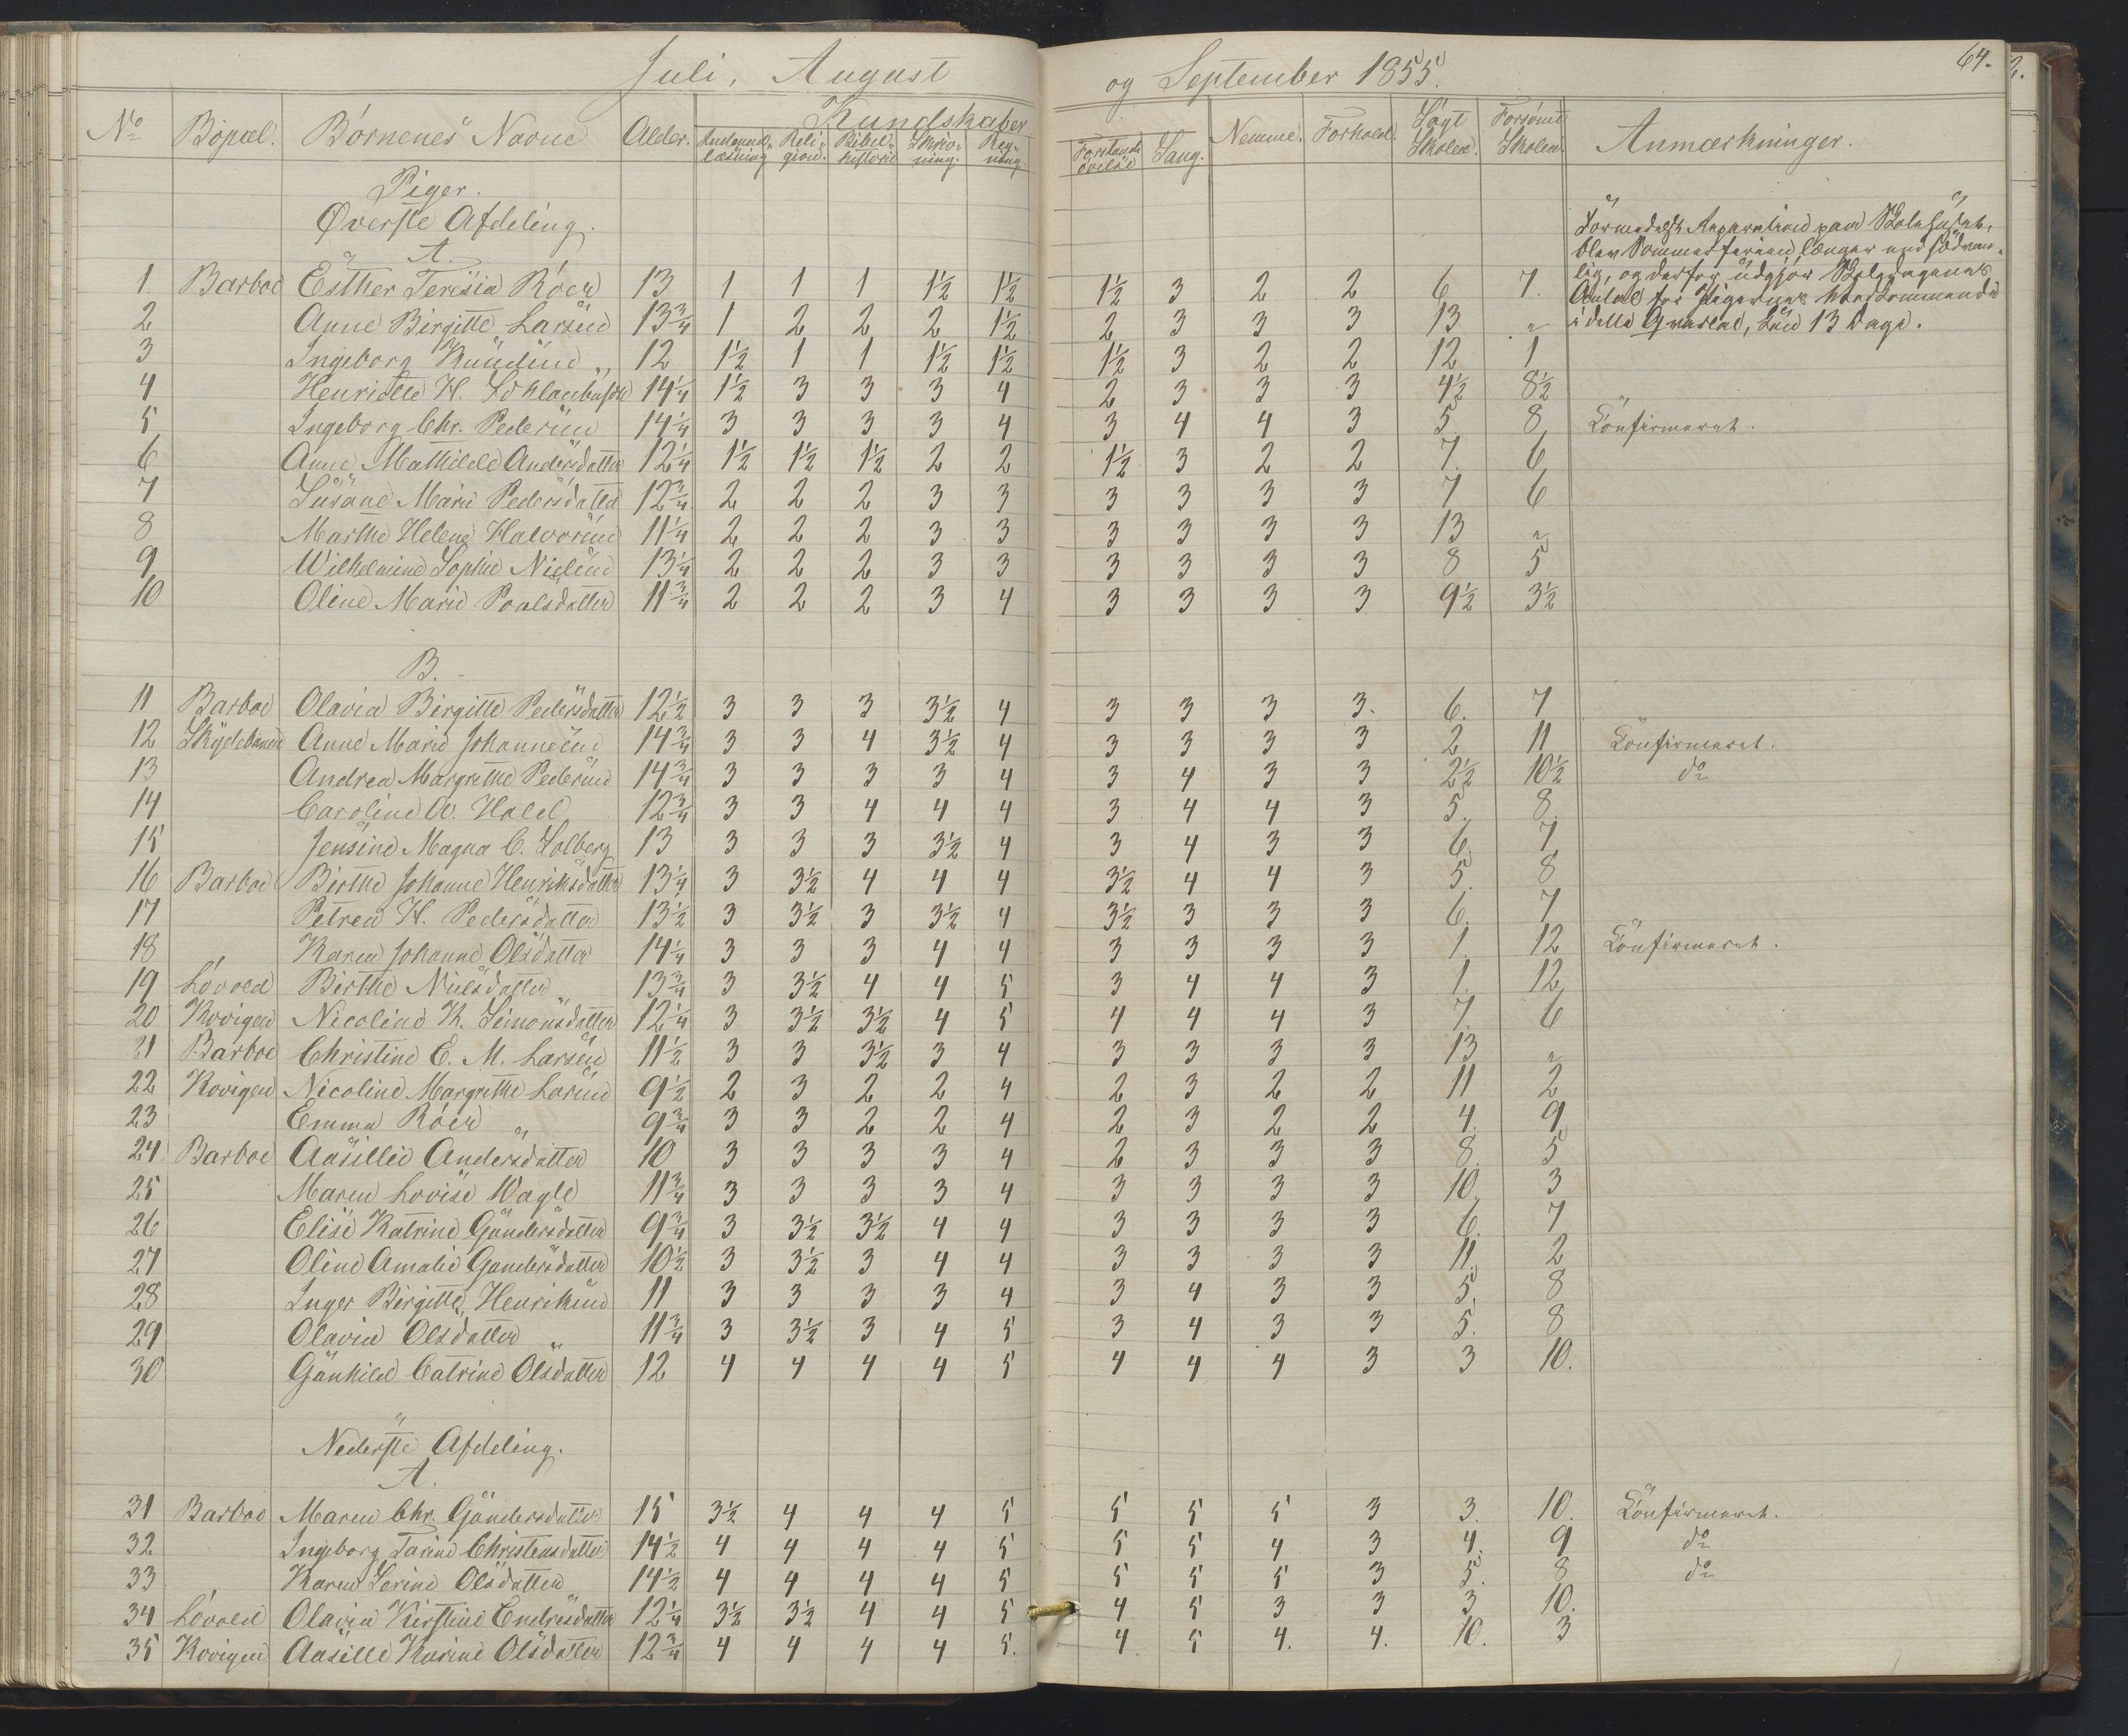 Juli, August og September 1855. 64.
No Bopæl. Børnenes Navne Alder. Kundskaber Nemme. Forhold. Søgt Skolen. Forsømt Skolen. Anmærkninger.
Indenadslæsning Religion. Bibelhistorie Skrivning. Regning. Forstandsøvelse Sang.
Piger.
Øverste Afdeling.
A.
Formedelst Reparation paa Skolehuset,
blev Sommerferien længer end sædvan-
lig, og derfor udgjør Skoledagenes
Antal for Pigernes Vedkommende
i dette Qvartal, kun 13 Dage.
1 Barboe Esther Teresia Röer 13 1 1 1 1½ 1½ 1½ 3 2 2 6 7.
2 Anne Birgitte Larsen 13¾ 1 2 2 2 1½ 2 3 3 3 13 "
3 Ingeborg Knudsen " 12 1½ 1 1 1½ 1½ 1½ 3 2 2 12 1
4 Henriette H. 14¼ 1½ 3 3 3 4 2 3 3 3 4½ 8½
5 Ingeborg Chr. Pedersen 14¼ 3 3 3 3 4 3 4 4 3 5 8 Confirmeret.
6 Anne Mathilde Andersdatter 12¼ 1½ 1½ 1½ 2 2 1½ 3 2 2 7. 6
7 Susane Marie Pedersdatter 12¾ 2 2 2 3 3 3 3 3 3 7 6
8 Marthe Helene Halvorsen 11¼ 2 2 2 3 3 3 3 3 3 13 "
9 Wilhelmine Sophie Nielsen 13¼ 2 2 2 3 3 3 3 3 3 8 5
10 Oline Marie Poulsdatter 11¾ 2 2 2 3 4 3 3 3 3 9½ 3½
B.
11 Barboe Olavia Birgitte Pedersdatter 12½ 3 3 3 3½ 4 3 3 3 3. 6. 7
12 Skydebanen Anne Marie Johannesen 14¾ 3 3 4 3½ 4 3 3 3 3 2 11 Confirmeret.
13 Andrea Margrethe Pedersen 14¾ 3 3 3 3 4 3 4 3 3 2½ 10½ do
14 Caroline A. Hald 12¾ 3 3 4 4 4 3 4 4 3 5. 8.
15 Jensine Magna C. Solberg 13 3 3 3 3½ 4 3 4 3 3 6. 7
16 Barboe Birthe Johanne Henriksdatter 13¼ 3 3½ 4 4 4 3½ 4 4 3 5. 8
17 Petrea H. Pedersdatter 13½ 3 3½ 3 3½ 4 3½ 3 3 3 6. 7
18 Karen Johanne Olsdatter 14¼ 3 3 3 4 4 3 3 3 3 1. 12 Confirmeret.
19 Løvold Birthe Nielsdatter 13¾ 3 3½ 4 4 5 3 4 4 3 1. 12
20 Kovigen Nicoline K. Simonsdatter 12¼ 3 3½ 3½ 4 5 4 4 4 3 7. 6
21 Barboe Christine E. M. Larsen 11½ 3 3 3½ 3 4 3 3 3 3 13 "
22 Kovigen Nicoline Margrethe Larsen 9½ 2 3 2 2 4 2 3 2 2 11 2
23 Emma Röer " 9¾ 3 3 2 2 4 2 3 2 2 4. 9
24 Barboe Aasille Andersdatter 10 3 3 3 3 4 2 3 3 3 8. 5
25 Maren Lovise Wagle 11¾ 3 3 3 3 4 3 3 3 3 10. 3
26 Elise Katrine Gundersdatter 9¾ 3 3½ 3½ 4 4 3 3 3 3 6. 7
27 Oline Amalie Gundersdatter 10½ 3 3½ 3 4 4 3 3 3 3 11. 2
28 Inger Birgitte Henriksen 11 3 3 3 3 4 3 4 3 3 5. 8
29 Olavia Olsdatter " 11¾ 3 3½ 3 4 5 3 4 3 3 5. 8
30 Gunhild Catrine Olsdatter 12 4 4 4 4 5 4 4 4 3 3 10.
Nederste Afdeling.
A.
31 Barboe Maren Chr. Gundersdatter 15 3½ 4 4 4 5 5 5 5 3 3. 10. Confirmeret.
32 Ingeborg Tarine Christensdatter 14½ 4 4 4 4 5 5 5 4 3 4. 9 do
33 Karen Serine Olsdatter 14½ 4 4 4 4 5 5 5 5 3 5. 8 do
34 Løvold Olavia Kirstine Endresdatter 12¼ 3½ 3½ 4 4 5 4 5 3 3 3 10.
35 Kovigen Aasille Karine Olsdatter 12¾ 4 4 4 4 5. 4 5 4. 4. 10. 3